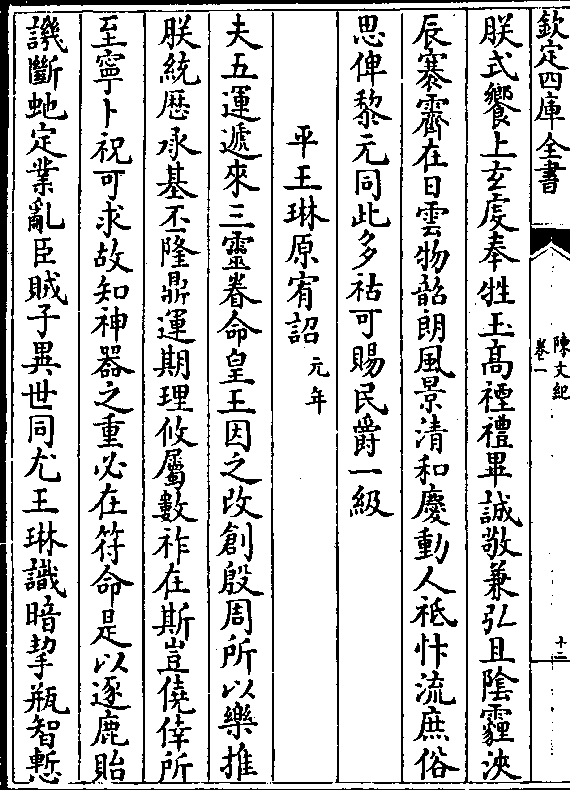 欽定四庫全書
陳文紀
卷一
十二
朕式饗上玄虔奉牲玉高禋禮畢誠敬兼弘且陰霾浹
辰褰霽在日雲物韶朗風景清和慶動人祗忭流庶俗
思俾黎元同此多祜可賜民爵一級
平王琳原宥詔元年
夫五運遞來三靈眷命皇王因之改創殷周所以樂推
朕統歴承基丕隆鼎運期理攸屬數祚在斯豈僥倖所
至寧卜祝可求故知神器之重必在符命是以逐鹿貽
譏斷虵定業亂臣賊子異世同尤王琳識暗挈瓶智慙